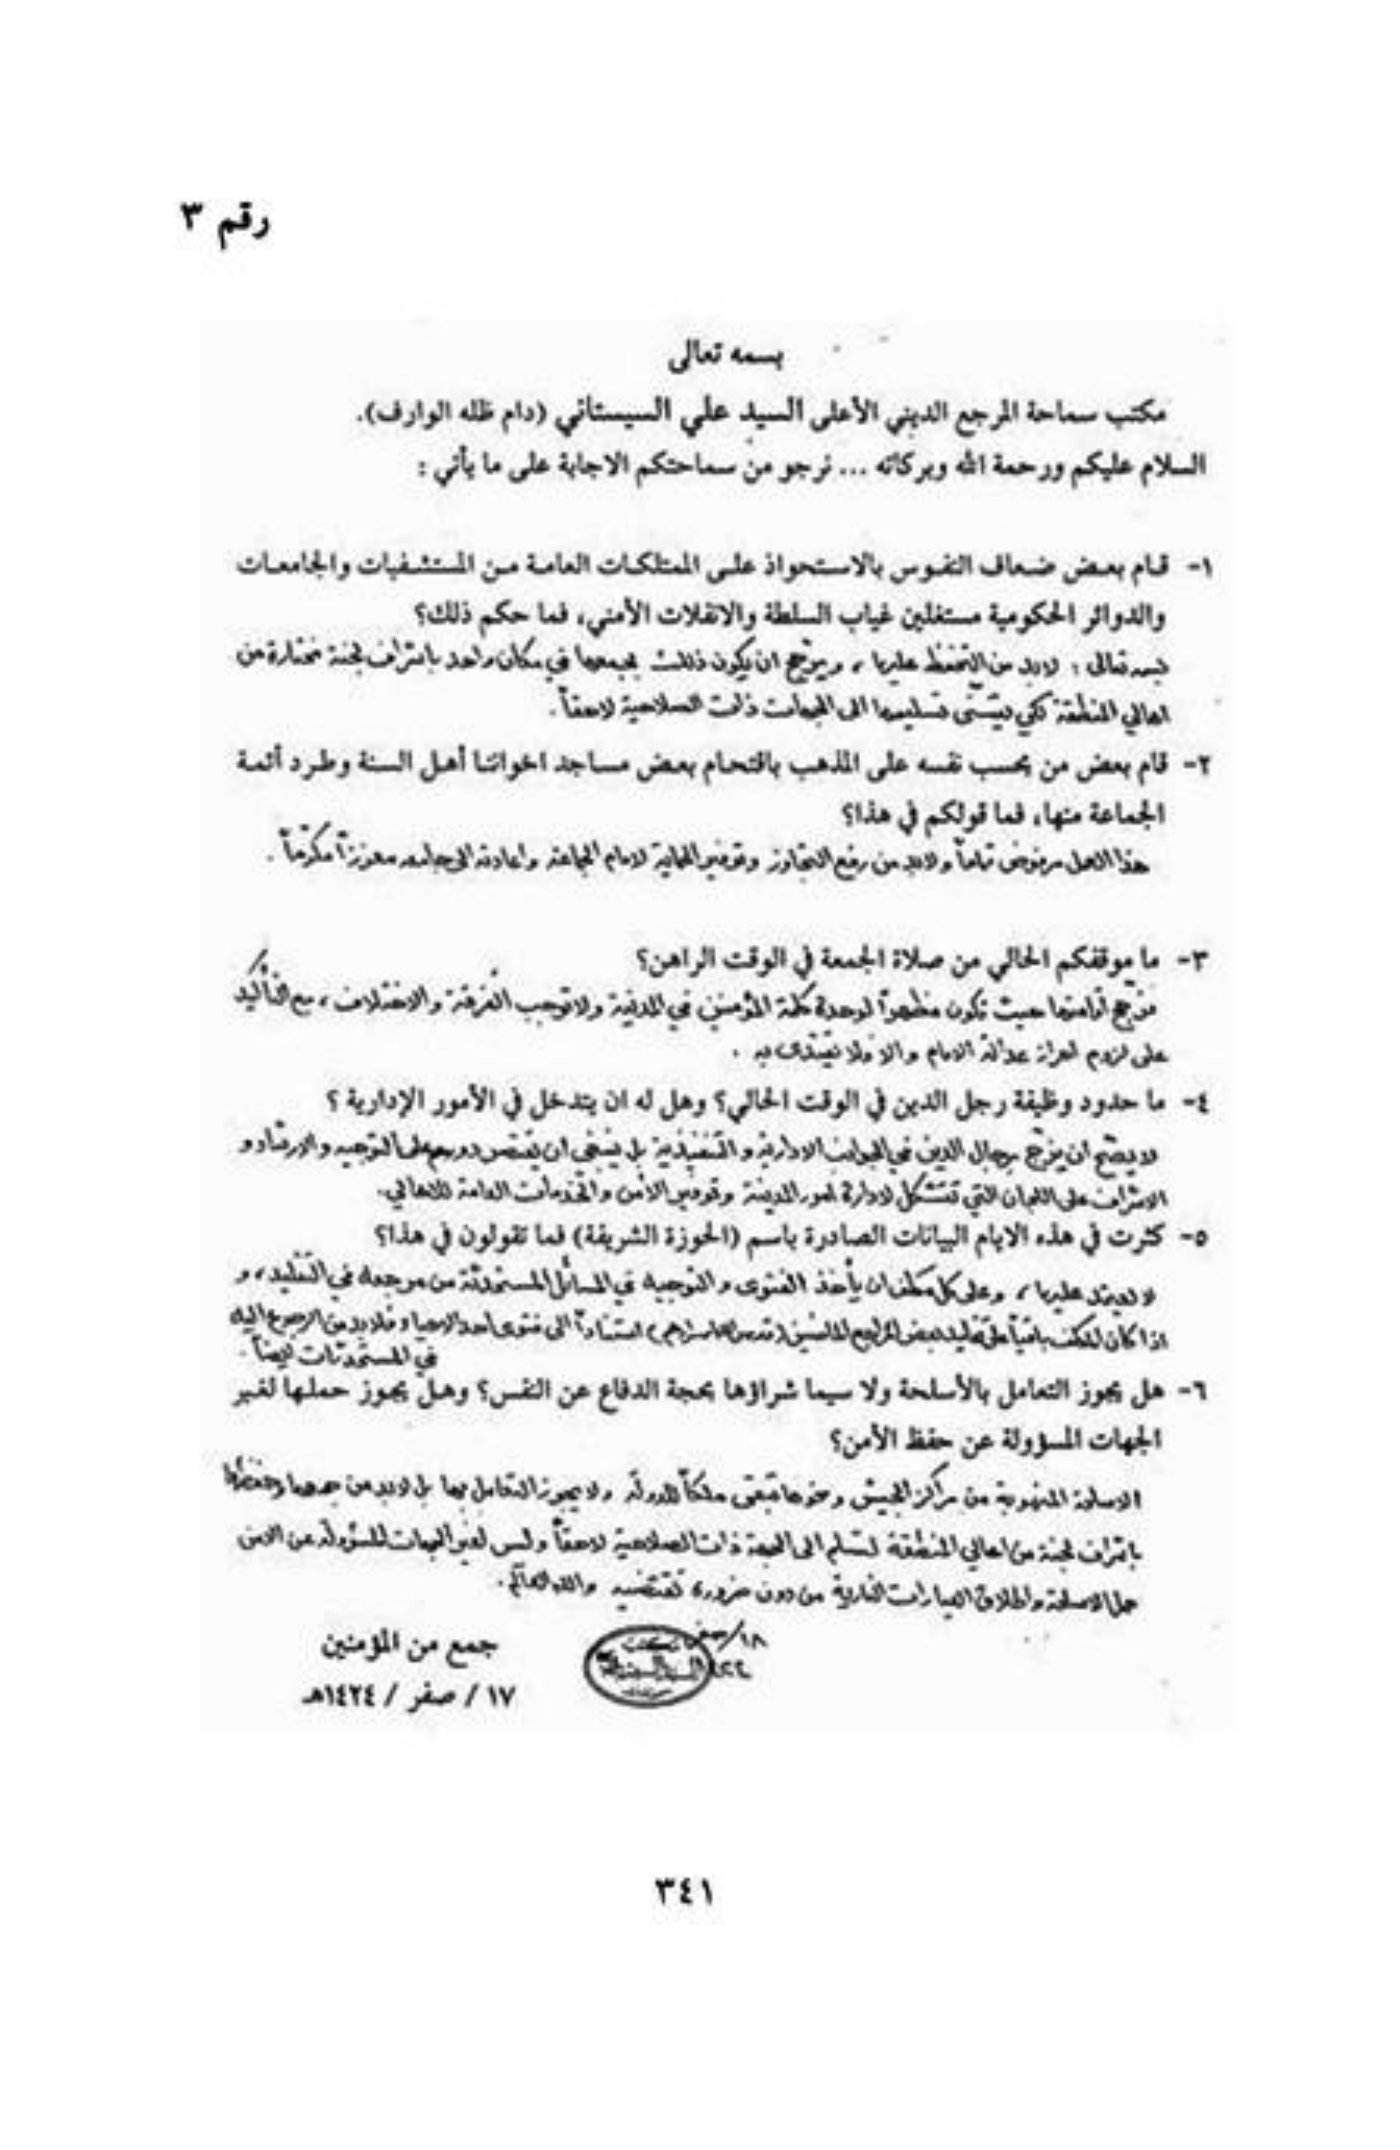 رقم ٣
بسمه تعالى
مكتب سماحة المرجع الديني الأعلى السيد علي السيستاني (دام ظله الوارف).
السلام عليكم ورحمة الله وبركاته ... نرجو من سماحتكم الاجابة على ما يأتي :
١- قام بعض ضعاف النفوس بالاستحواذ على الممتلكات العامة من المستشفيات والجامعات
والدوائر الحكومية مستغلين غياب السلطة والانفلات الأمني، فما حكم ذلك؟
بسمه تعالى : لابد من التحفظ عليها ، ويرجّح ان يكون ذلك بجمعها في مكان واحد باشراف لجنة مختارة من
اهالي المنطقة لكي يتسنّى تسليمها الى الجهات ذات الصلاحية لاحقاً .
٢- قام بعض من يحسب نفسه على المذهب باقتحام بعض مساجد اخواننا أهل السنة وطرد أئمة
الجماعة منها، فما قولكم في هذا؟
هذا العمل مرفوض تماماً ولابد من رفع التجاوز وتوفير الحماية لامام الجماعة واعادته الى جامعه معززاً مكرّماً .
٣- ما موقفكم الحالي من صلاة الجمعة في الوقت الراهن؟
نرجّح اقامتها حيث تكون مظهراً لوحدة كلمة المؤمنين في المدينة ولا توجب الفرقة والاختلاف ، مع التأكيد
على لزوم احراز عدالة الامام والا فلا يقتدى به .
٤- ما حدود وظيفة رجل الدين في الوقت الحالي؟ وهل له ان يتدخل في الأمور الإدارية ؟
لا يصح ان يزجّ برجال الدين في الجوانب الادارية والتنفيذية بل ينبغي ان يقتصر دورهم على التوجيه والارشاد و
الاشراف على اللجان التي تتشكل لادارة امور المدينة وتوفير الامن والخدمات العامة للاهالي.
٥- كثرت في هذه الايام البيانات الصادرة باسم (الحوزة الشريفة) فما تقولون في هذا؟
لا يعتد عليها ، وعلى كل مكلف ان يأخذ الفتوى والتوجيه في المسائل المستحدثة من مرجعه في التقليد ، و
اذا كان المكلف باقياً على تقليد بعض المراجع الماضين (قدس الله اسرارهم) استناداً الى فتوى احد الاحياء فلابد من الرجوع اليه
في المستحدثات ايضاً .
٦- هل يجوز التعامل بالأسلحة ولا سيما شراؤها بحجة الدفاع عن النفس؟ وهل يجوز حملها لغير
الجهات المسؤولة عن حفظ الأمن؟
الاسلحة المنهوبة من مراكز الجيش ونحوها تبقى ملكاً للدولة ولا يجوز التعامل بها بل لابد من جمعها وحفظها
باشراف لجنة من اهالي المنطقة لتسلم الى الجهة ذات الصلاحية لاحقاً وليس لغير الجهات المسؤولة عن الامن
حمل الاسلحة واطلاق العيارات النارية من دون ضرورة تقتضيه والله العالم .
١٨/صفر
جمع من المؤمنين
١٧ / صفر / ١٤٢٤هـ
٣٤١